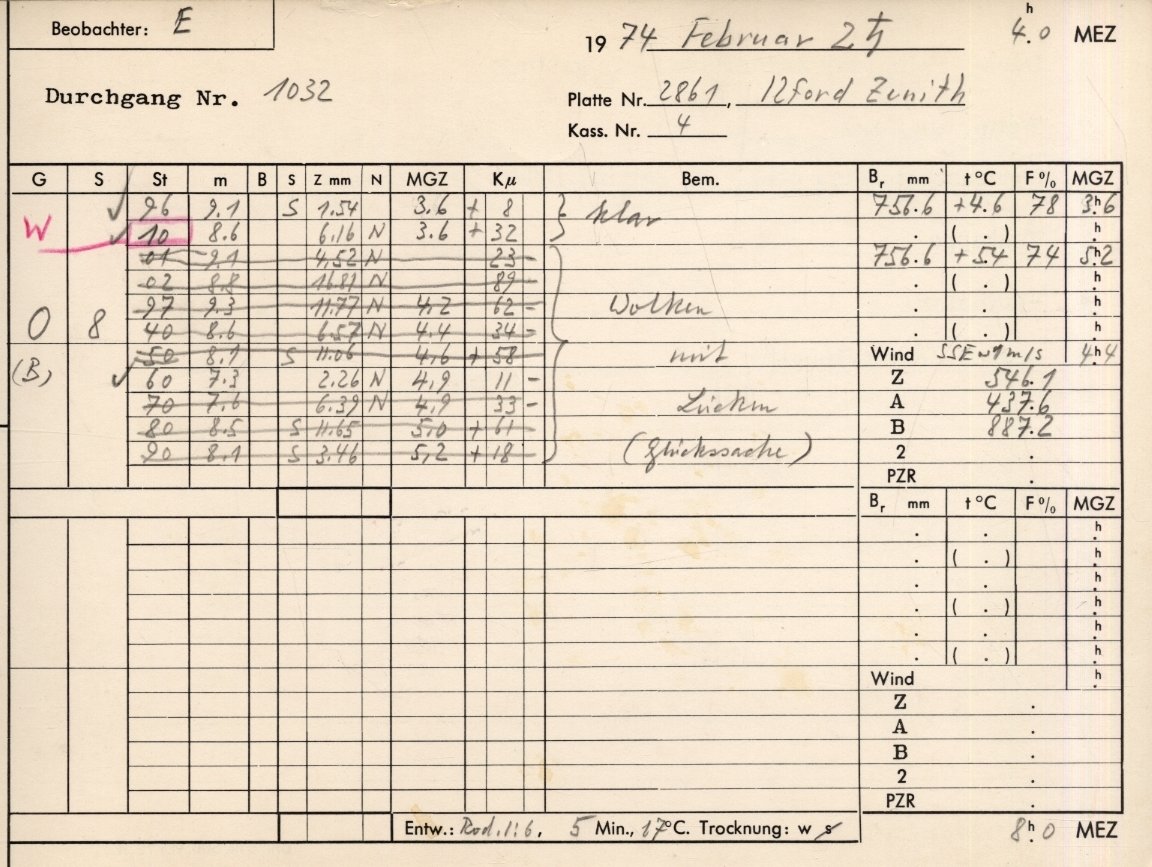 Beobachter: E
19 74 Februar 2 ♄ 4.ʰ0 MEZ
Durchgang Nr. 1032
Platte Nr. 2861, Ilford Zenith
Kass. Nr. 4
G S St m B S Z mm N MGZ Kμ Bem. Bᵣ mm t °C F % MGZ
✓ 96 9.1 S 1.54 3.6 + 8 } klar 756.6 +4.6 78 3ʰ.6
W ✓ 10 8.6 6.16 N 3.6 + 32 . ( . ) ʰ.
01 9.1 4,52 N 23 - 756.6 +5.4 74 5ʰ.2
02 8.8 16.81 N 89 - . ( . ) ʰ.
97 9.3 11.77 N 4,2 62 - Wolken . . ʰ.
O 8 40 8.6 6.57 N 4.4 34 - . ( . ) ʰ.
50 8.1 S 11.06 4,6 + 58 mit Wind SSE ~1 m/s 4ʰ.4
(B) ✓ 60 7.3 2.26 N 4,9 11 - Z 546.1
70 7.6 6.39 N 4,9 33 - Lücken A 437.6
80 8.5 S 11.65 5,0 + 61 B 887.2
90 8.1 S 3.46 5,2 + 18 (Glückssache) 2 .
PZR .
Bᵣ mm t °C F % MGZ
. . ʰ.
. ( . ) ʰ.
. . ʰ.
. ( . ) ʰ.
. . ʰ.
. ( . ) ʰ.
Wind ʰ.
Z .
A .
B .
2 .
PZR .
Entw.: Rod. 1:6, 5 Min., 17°C. Trocknung: w s
8ʰ.0 MEZ